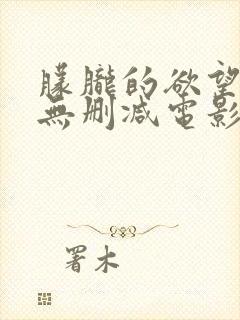 朦朧的欲望
無删减電影
署木